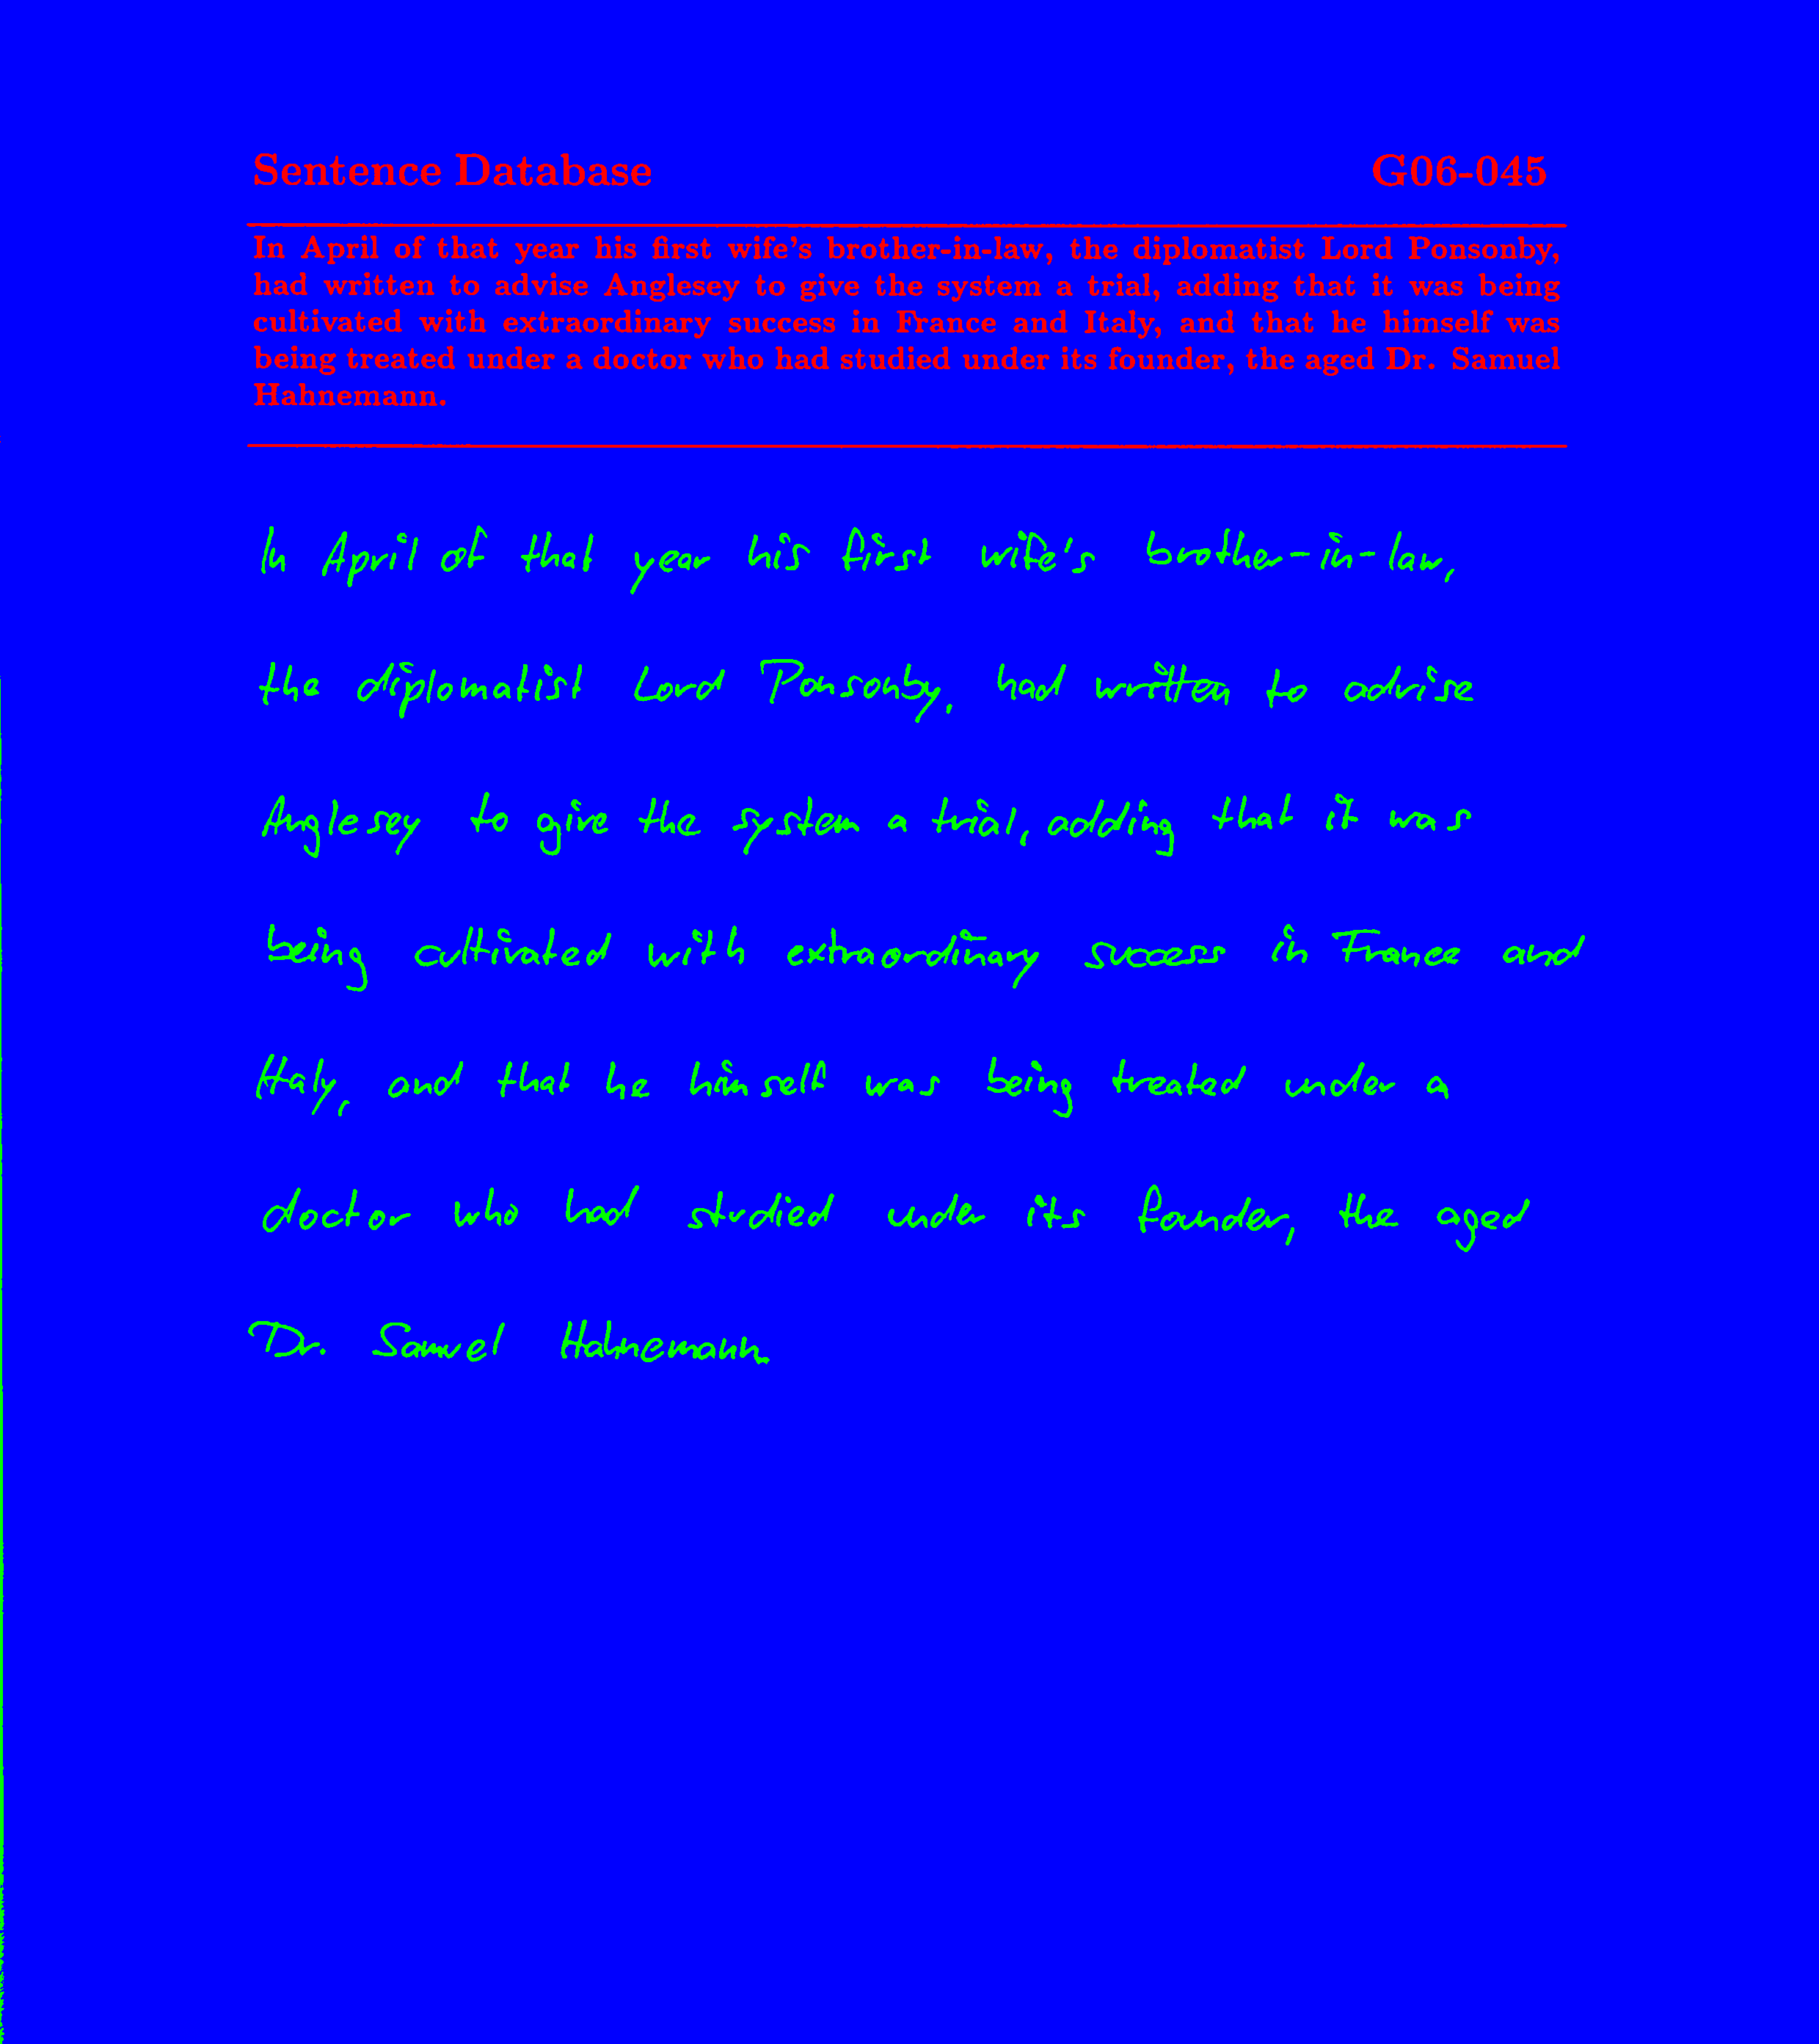 Sentence Database G06-045
In April of that year his first wife's brother-in-law, the diplomatist Lord Ponsonby,
had written to advise Anglesey to give the system a trial, adding that it was being
cultivated with extraordinary success in France and Italy, and that he himself was
being treated under a doctor who had studied under its founder, the aged Dr. Samuel
Hahnemann.
In April of that year his first wife's brother-in-law,
the diplomatist Lord Ponsonby, had written to advise
Anglesey to give the system a trial, adding that it was
being cultivated with extraordinary success in France and
Italy, and that he himself was being treated under a
doctor who had studied under its founder, the aged
Dr. Samuel Hahnemann.